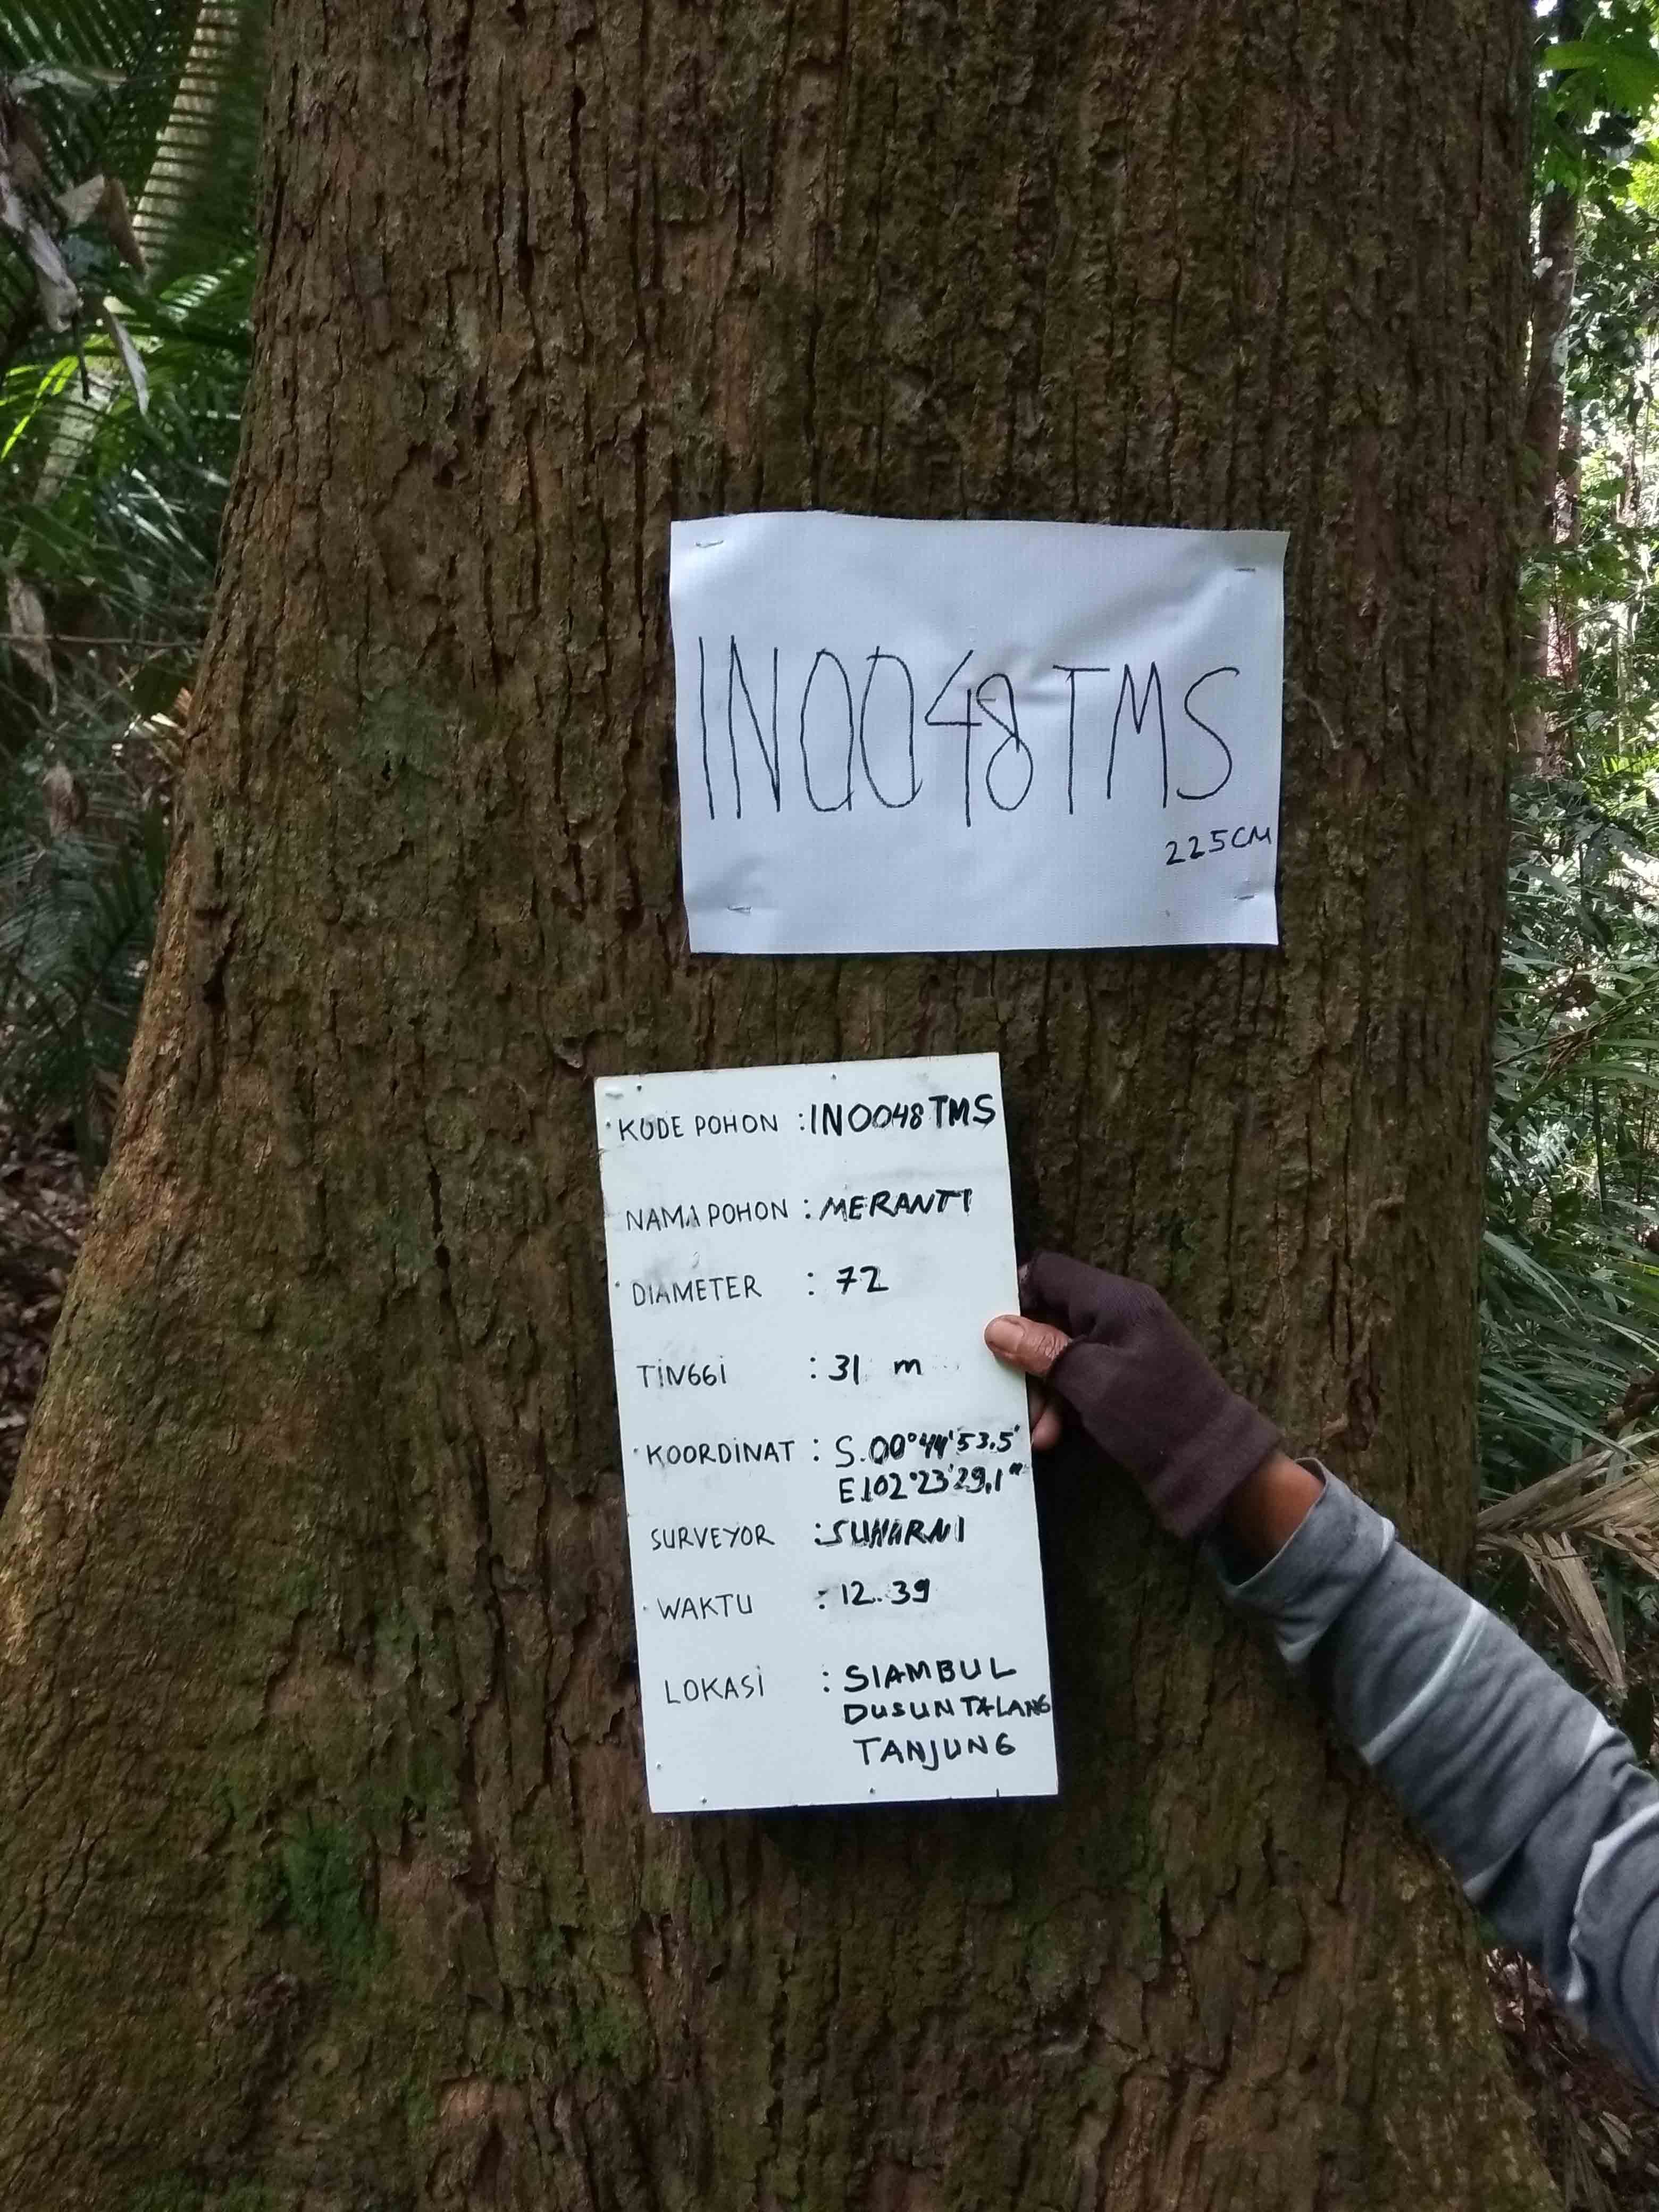 IN0048TMS
225CM
KODE POHON : IN0048 TMS
NAMA POHON : MERANTI
DIAMETER : 72
TINGGI : 31 m
KOORDINAT : S.00°44'53.5"
E.102°23'29,1"
SURVEYOR : SUHARNI
WAKTU : 12.39
LOKASI : SIAMBUL
DUSUN TALANG
TANJUNG